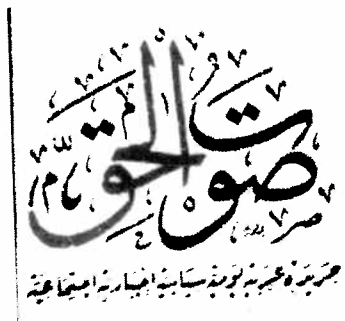 صوت الحق
جريدة عربية يومية سياسية اخبارية اجتماعية